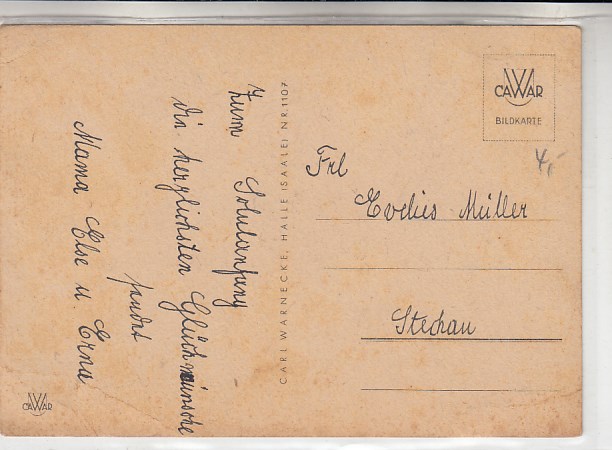 Zum Schulanfang
die herzlichsten Glückwünsche
sendet
Mama Else u. Erna
CARL WARNECKE, HALLE (SAALE) NR. 1107
CAWAR
BILDKARTE
4,-
Frl
Evelies Müller
Stechau
CAWAR